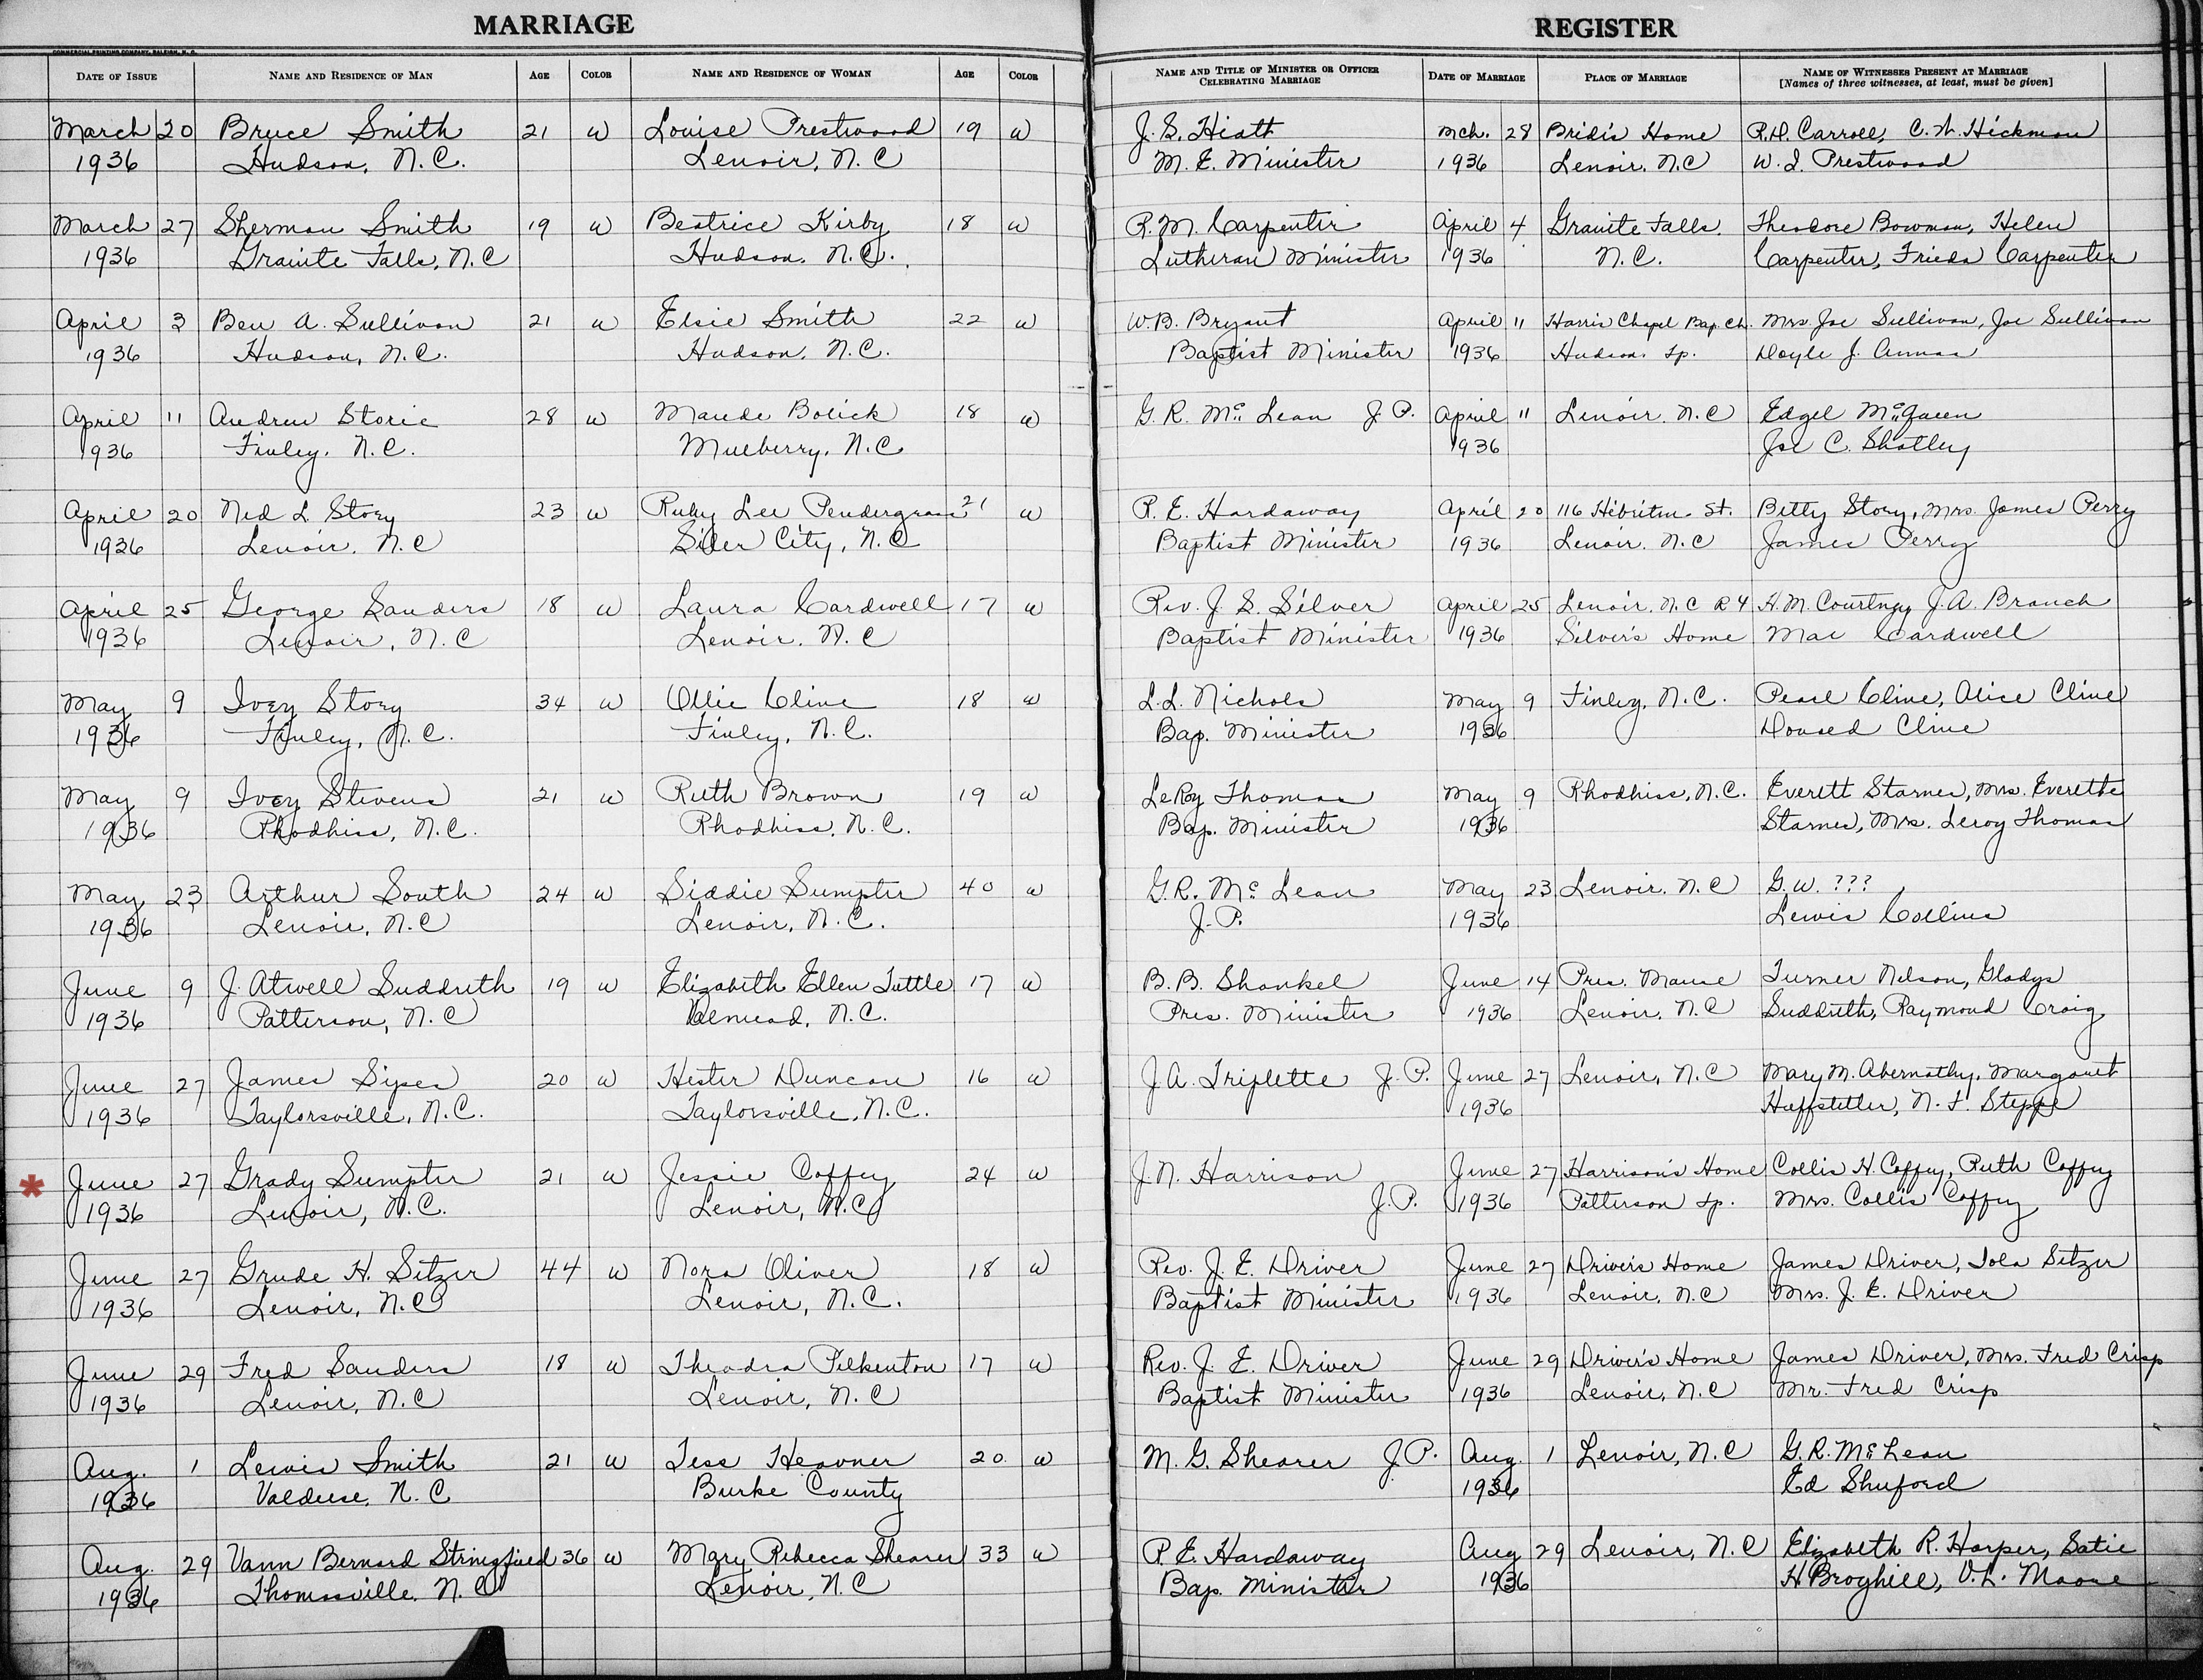 MARRIAGE REGISTER
COMMERCIAL PRINTING COMPANY, RALEIGH, N. C.
DATE OF ISSUE NAME AND RESIDENCE OF MAN AGE COLOR NAME AND RESIDENCE OF WOMAN AGE COLOR NAME AND TITLE OF MINISTER OR OFFICER CELEBRATING MARRIAGE DATE OF MARRIAGE PLACE OF MARRIAGE NAME OF WITNESSES PRESENT AT MARRIAGE
[Names of three witnesses, at least, must be given]
March 20 Bruce Smith 21 W Louise Prestwood 19 W J. S. Hiatt Mch. 28 Bride's Home R.D. Carroll, C. W. Hickman
1936 Hudson, N.C. Lenoir, N.C M. E. Minister 1936 Lenoir, N.C W. I. Prestwood
March 27 Sherman Smith 19 W Beatrice Kirby 18 W R. M. Carpenter April 4 Granite Falls, Theodore Bowman, Helen
1936 Granite Falls, N.C Hudson, N.C. Lutheran Minister 1936 N.C. Carpenter, Frieda Carpenter
April 3 Ben A. Sullivan 21 W Elsie Smith 22 W W.B. Bryant April 11 Harris Chapel Bap. Ch. Mrs Joe Sullivan, Joe Sullivan
1936 Hudson, N.C. Hudson, N.C. Baptist Minister 1936 Hudson Tp. Doyle J. Annas
April 11 Andrew Storie 28 W Maude Bolick 18 W G. R. McLean J.P. April 11 Lenoir, N.C Edgel McQueen
1936 Finley, N.C. Mulberry, N.C 1936 Joe C. Shatley
April 20 Ned L Story 23 W Ruby Lee Pendergrass 21 W R. E. Hardaway April 20 116 Hibriten St. Betty Story, Mrs. James Perry
1936 Lenoir, N.C Siler City, N.C Baptist Minister 1936 Lenoir, N.C James Perry
April 25 George Sanders 18 W Laura Cardwell 17 W Rev. J. S. Silver April 25 Lenoir, N.C R 4 H.M. Courtney J.A. Branch
1936 Lenoir, N.C Lenoir, N.C Baptist Minister 1936 Silver's Home Mae Cardwell
May 9 Ivey Story 34 W Ollie Cline 18 W L.L. Nichols May 9 Finley, N.C. Pearl Cline, Alice Cline
1936 Finley, N.C. Finley, N.C. Bap. Minister 1936 Cline
May 9 Ivey Stevens 21 W Ruth Brown 19 W LeRoy Thomas May 9 Rhodhiss, N.C. Everett Starnes, Mrs. Everette
1936 Rhodhiss, N.C. Rhodhiss, N.C. Bap. Minister 1936 Starnes, Mrs. Leroy Thomas
May 23 Arthur South 24 W Siddie Sumpter 40 W G.R. McLean May 23 Lenoir, N.C G.W. ???
1936 Lenoir, N.C Lenoir, N.C. J.P. 1936 Lewis Collins
June 9 J. Atwell Suddreth 19 W Elizabeth Ellen Tuttle 17 W B.B. Shankel June 14 Pres. Manse Turner Nelson, Gladys
1936 Patterson, N.C Valmead, N.C. Pres. Minister 1936 Lenoir, N.C Suddreth, Raymond Craig
June 27 James Sipes 20 W Hester Duncan 16 W J.A. Triplette J.P. June 27 Lenoir, N.C Mary M. Abernathy, Margaret
1936 Taylorsville, N.C. Taylorsville, N.C. 1936 Huffstetler, N.F. Steppe
* June 27 Grady Sumpter 21 W Jessie Coffey 24 W J.N. Harrison June 27 Harrison's Home Collis H. Coffey, Ruth Coffey
1936 Lenoir, N.C. Lenoir, N.C J.P. 1936 Patterson Tp. Mrs. Collis Coffey
June 27 Grude H. Setzer 44 W Nora Oliver 18 W Rev. J. E. Driver June 27 Driver's Home James Driver, Iola Setzer
1936 Lenoir, N.C Lenoir, N.C. Baptist Minister 1936 Lenoir, N.C Mrs. J. E. Driver
June 29 Fred Sanders 18 W Theadra Pilkenton 17 W Rev. J. E. Driver June 29 Driver's Home James Driver, Mrs. Fred Crisp
1936 Lenoir, N.C Lenoir, N.C Baptist Minister 1936 Lenoir, N.C Mr. Fred Crisp
Aug. 1 Lewis Smith 21 W Tess Heavner 20 W M. G. Shearer J.P. Aug. 1 Lenoir, N.C G.R. McLean
1936 Valdese, N.C Burke County 1936 Ed Shuford
Aug. 29 Vann Bernard Stringfield 36 W Mary Rebecca Shearer 33 W R. E. Hardaway Aug 29 Lenoir, N.C Elizabeth R. Harper, Satie
1936 Thomasville, N.C Lenoir, N.C Bap. Minister 1936 H Broyhill, O.L. Moore